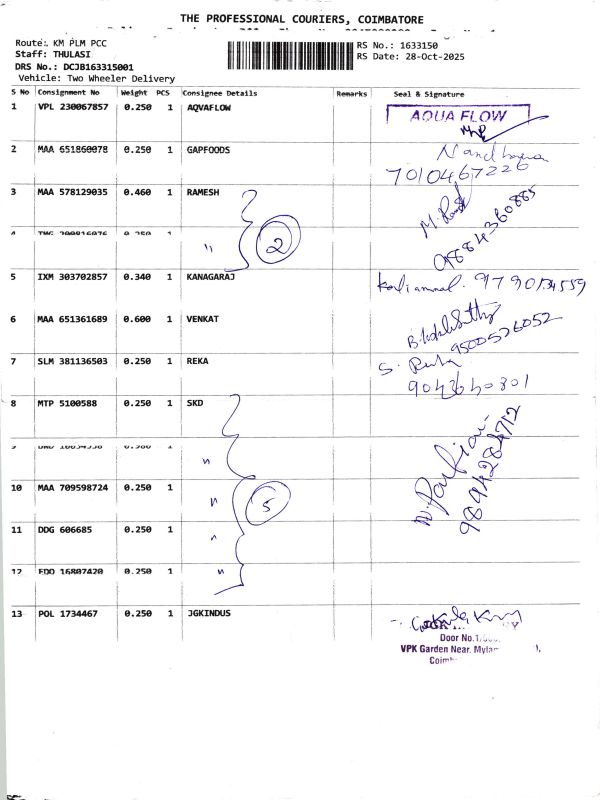 THE PROFESSIONAL COURIERS, COIMBATORE
Route: KM PLM PCC
RS No.: 1633150
Staff: THULASI
RS Date: 28-Oct-2025
DRS No.: DCJB163315001
Vehicle: Two Wheeler Delivery
S No Consignment No Weight PCS Consignee Details Remarks Seal & Signature
1 VPL 230067857 0.250 1 AQVAFLOW AQUA FLOW
2 MAA 651860078 0.250 1 GAPFOODS
7010467226
3 MAA 578129035 0.460 1 RAMESH
9884360885
4 0.250 1 " 2
5 IXM 303702857 0.340 1 KANAGARAJ Kaliammal. 9790134559
6 MAA 651361689 0.600 1 VENKAT
9500526052
7 SLM 381136503 0.250 1 REKA
9042640301
8 MTP 5100588 0.250 1 SKD
9894284712
9 1 "
10 MAA 709598724 0.250 1 " 5
11 DDG 606685 0.250 1 "
12 EDO 16807420 0.250 1 "
13 POL 1734467 0.250 1 JGKINDUS
Door No.1
VPK Garden Near,